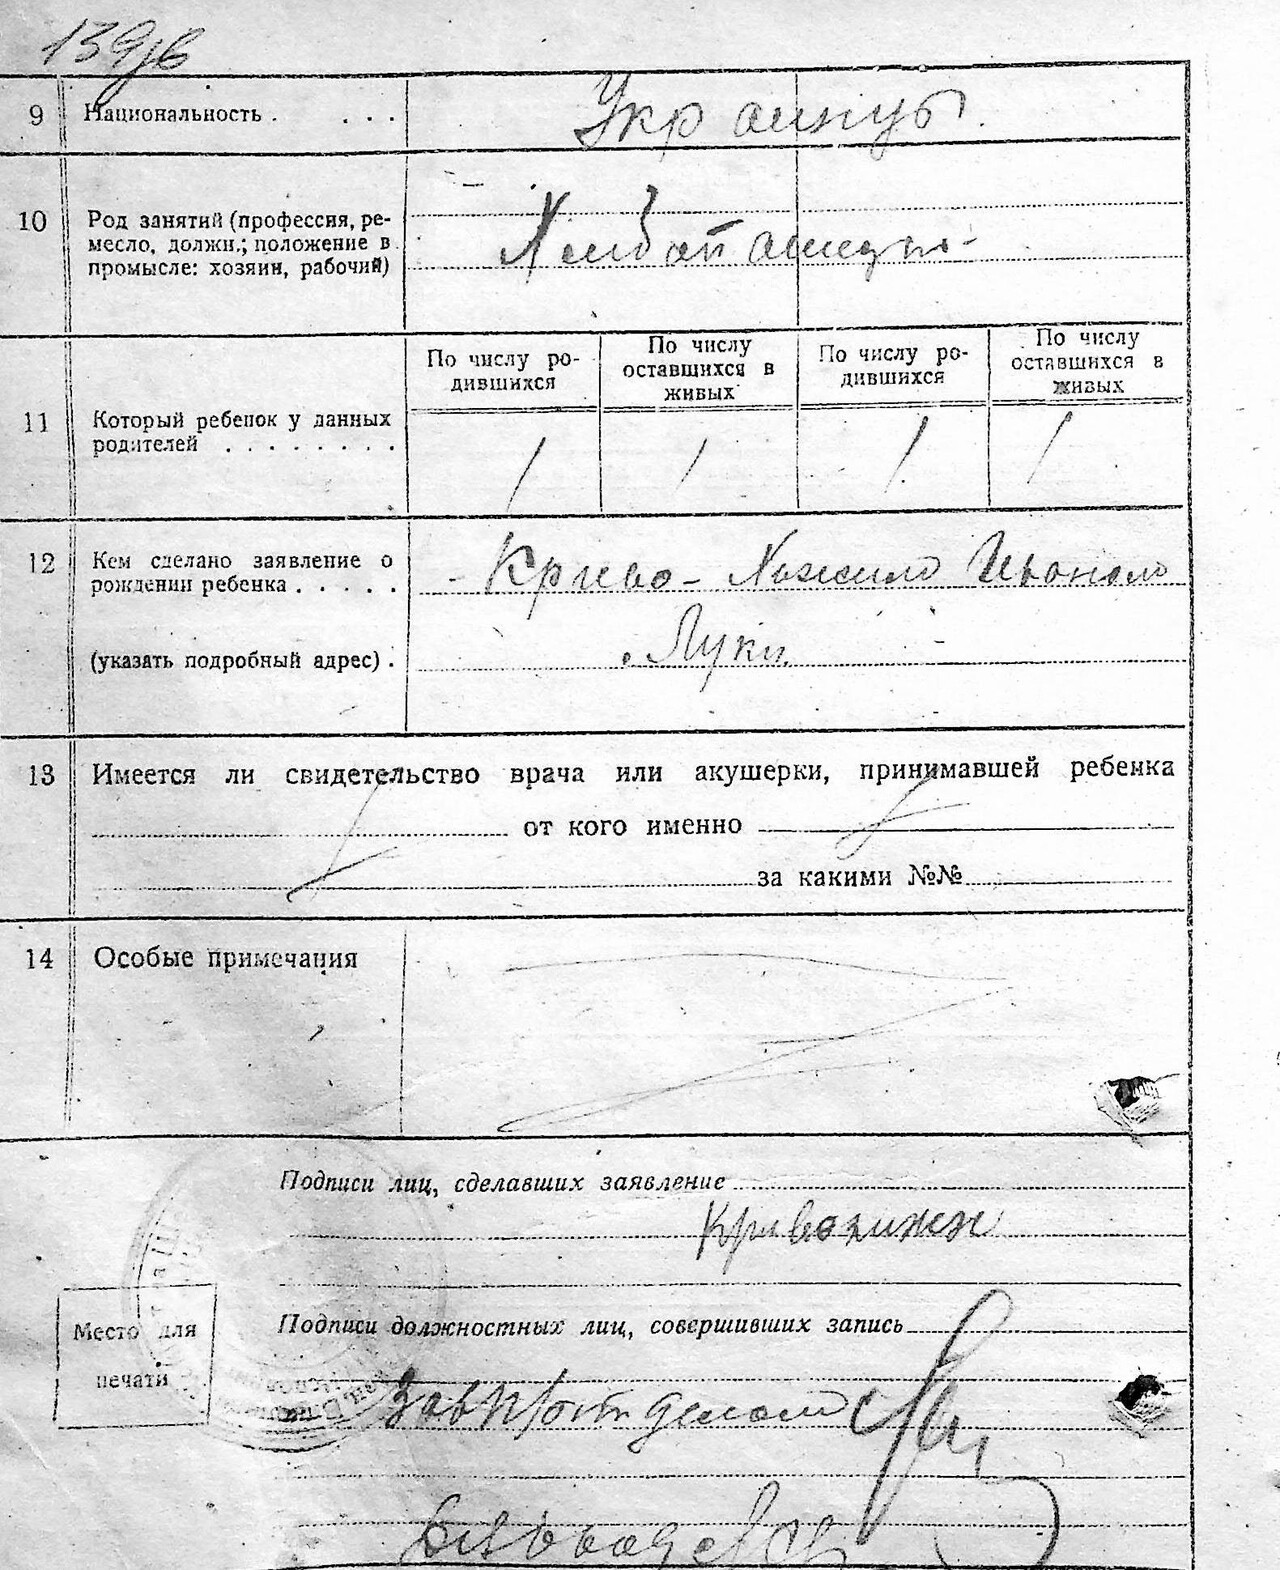 139/6
9 Национальность . . . . Украинцы.
10 Род занятий (профессия, ре-
месло, должн.; положение в
промысле: хозяин, рабочий)
Хлебопашцы
По числу ро-
дившихся
По числу
оставшихся в
живых
По числу ро-
дившихся
По числу
оставшихся в
живых
11 Который ребенок у данных
родителей . . . . . . . .
1 1 1 1
12 Кем сделано заявление о
рождении ребенка . . . . .
(указать подробный адрес) .
Луки
13 Имеется ли свидетельство врача или акушерки, принимавшей ребенка
от кого именно
за какими №№
14 Особые примечания
Подписи лиц, сделавших заявление
Подписи должностных лиц, совершивших запись
Место для
печати